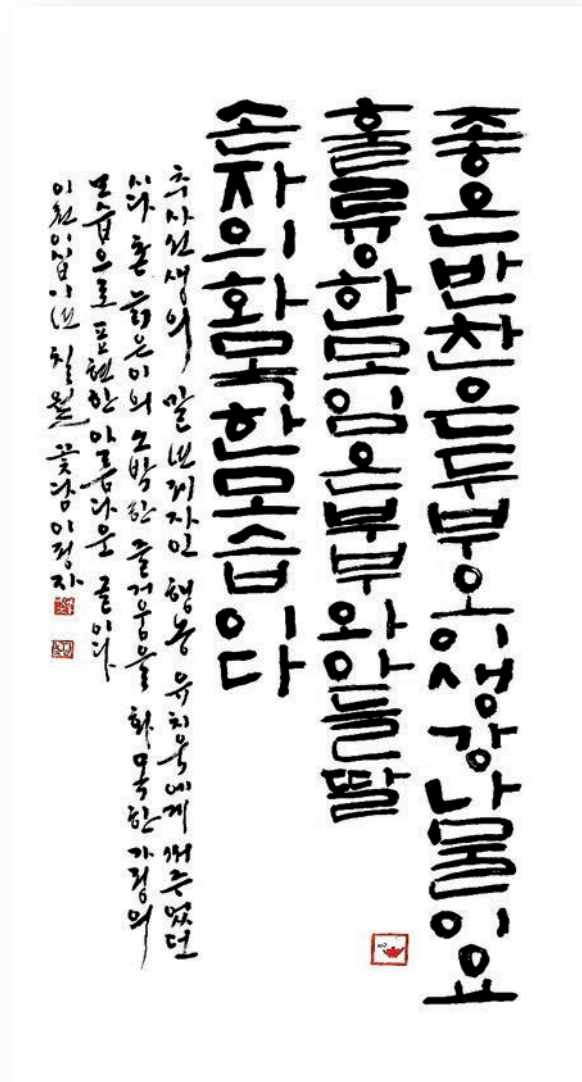 좋은반찬은두부오이생강나물이요
훌륭한모임은부부와아들딸
손자의화목한모습이다
추사선생의 말년제자인 행농 유치욱에게 써주었던
시다 촌 늙은이의 소박한 즐거움을 화목한 가정의
모습으로 표현한 아름다운 글이다
이천이십이년 칠월 꽃담 이정자